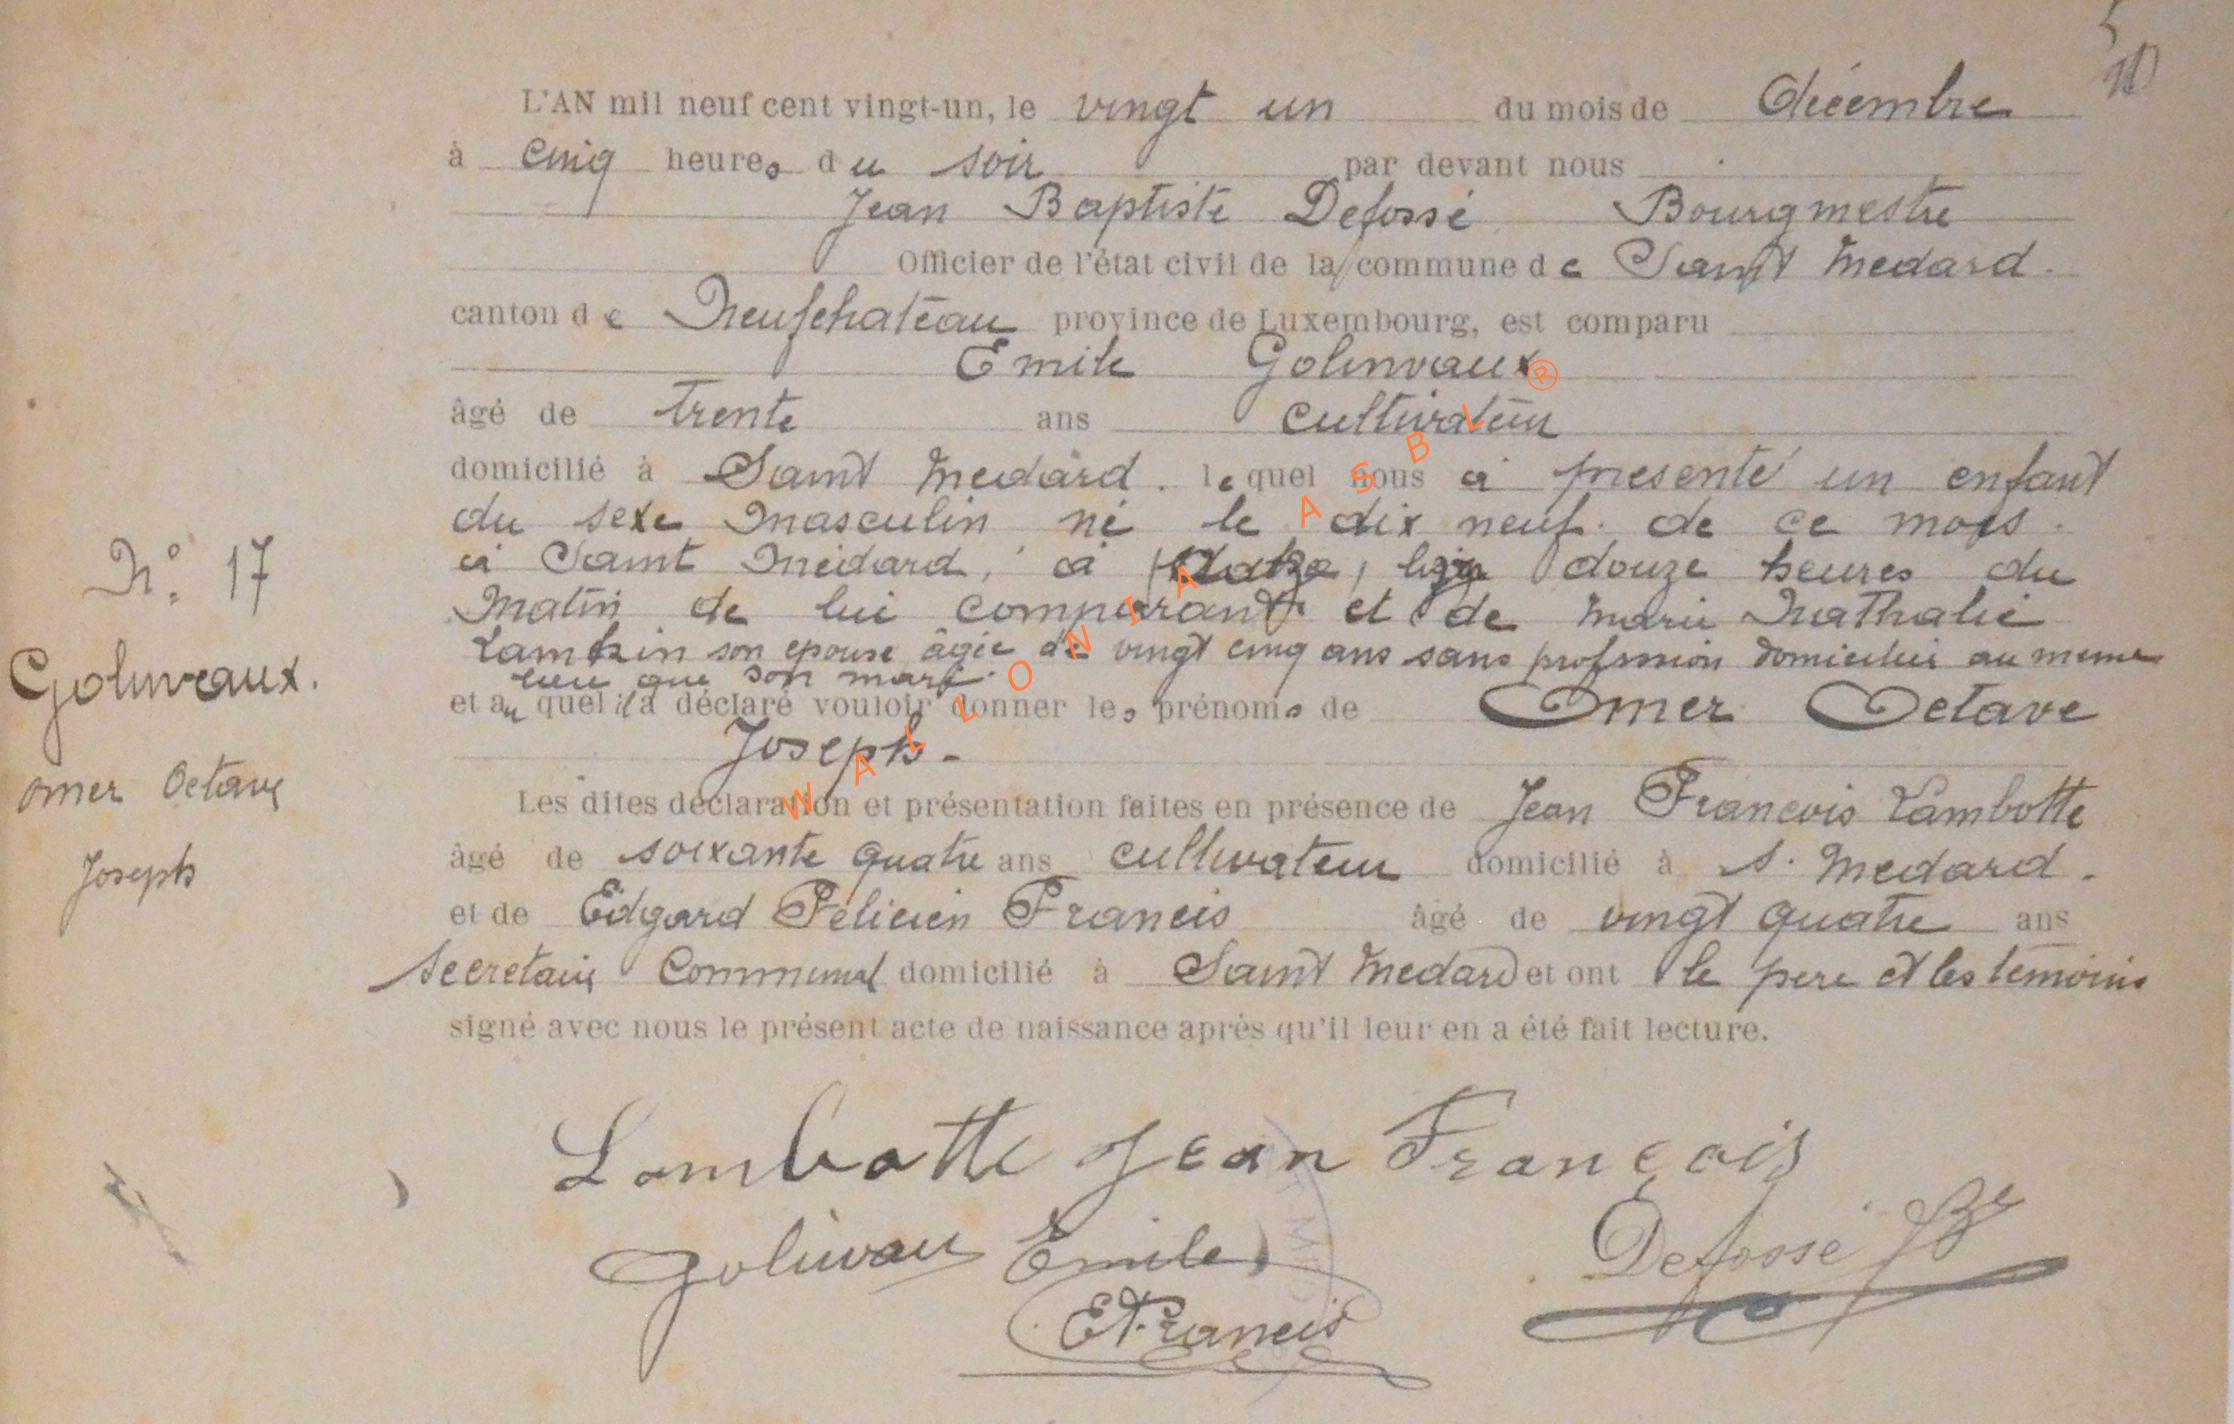 L'AN mil neuf cent vingt-un, le vingt un du mois de décembre
à cinq heures du soir par devant nous
Jean Baptiste Defossé Bourgmestre
Officier de l'état civil de la commune de Saint Medard.
canton de Neufchateau province de Luxembourg, est comparu
Emile Golinvaux
âgé de trente ans cultivateur
domicilié à Saint Medard. lequel nous a presenté un enfant
du sexe masculin né le dix neuf. de ce mois.
à Saint Médard, à douze heures du
matin de lui comparant et de Marie Nathalie
Lambin son epouse âgée de vingt cinq ans sans profession domiciliée au meme
lieu que son mari.
et auquel il a déclaré vouloir donner les prénoms de Omer Octave
Joseph-
Les dites déclaration et présentation faites en présence de Jean Francois Lambotte
âgé de soixante quatre ans cultivateur domicilié à S. Medard.
et de Edgard Félicien Francis âgé de vingt quatre ans
secretaire Communal domicilié à Saint Medard et ont le pere et les temoins
signé avec nous le présent acte de naissance après qu'il leur en a été fait lecture.
N° 17
Golinveaux.
omer Octave
Joseph
Lambotte Jean François
Golinvau Emile
Defossé JBte
E Francis
WALLONIA ASBL ®